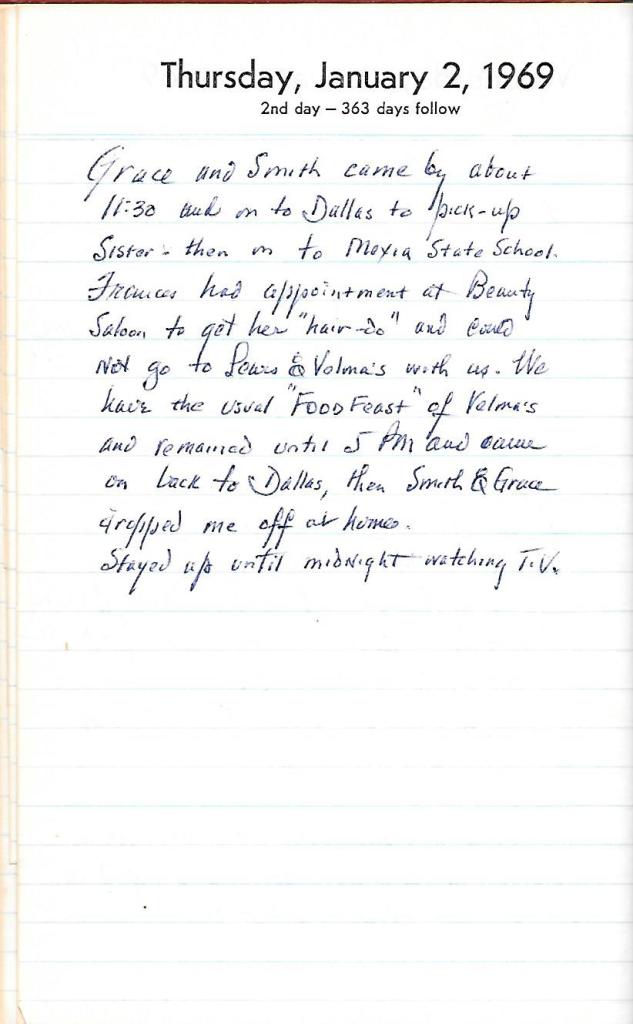 Thursday, January 2, 1969
2nd day – 363 days follow
Grace and Smith came by about
11:30 and on to Dallas to pick-up
Sister - then on to Mexia State School.
Frances had appointment at Beauty
Saloon to get her "hair-do" and could
not go to Lewis & Velma's with us. We
have the usual "Food Feast" of Velma's
and remained until 5 PM and came
on back to Dallas, then Smith & Grace
dropped me off at home.
Stayed up until midnight watching T.V.